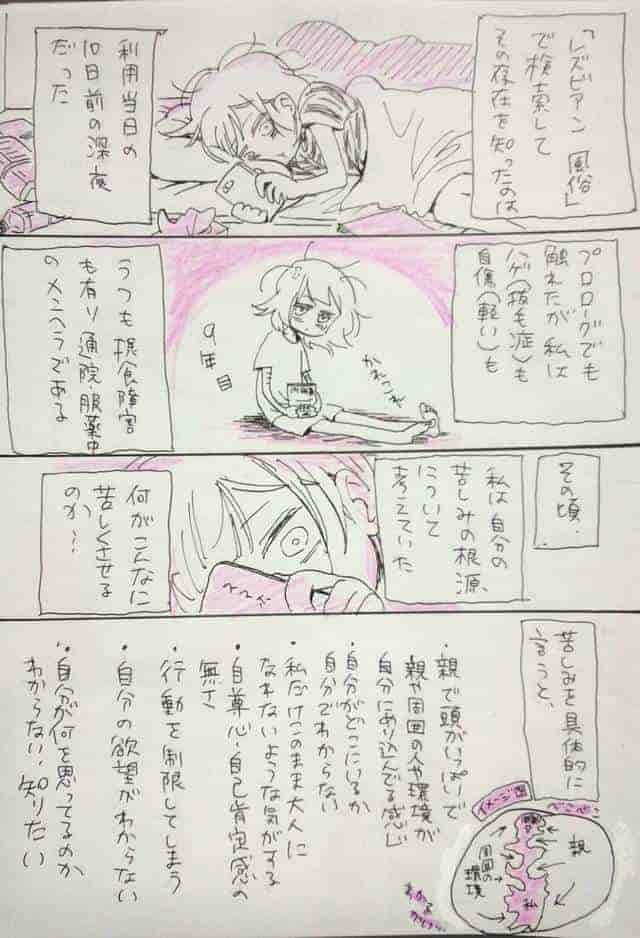 「レズビアン 風俗」
で検索して
その存在を知ったのは
利用当日の
10日前の深夜
だった
プロローグでも
触れたが私は
ハゲ(抜毛症)も
自傷(軽い)も
かれこれ
9年目
うつも摂食障害
も有り通院・服薬中
のメンヘラである
その頃、
私は自分の
苦しみの根源
について
考えていた
何がこんなに
苦しくさせる
のか…
苦しみを具体的に
言うと、
・親で頭がいっぱいで
親や周囲の人や環境が
自分にめり込んでる感じ
・自分がどこにいるか
自分でわからない
・私だけこのまま大人に
なれないような気がする
・自尊心・自己肯定感の
無さ
・行動を制限してしまう
・自分の欲望がわからない
・自分が何を思ってるのか
わからない、知りたい
イメージ図
べこべこ
親
周囲の
環境
私